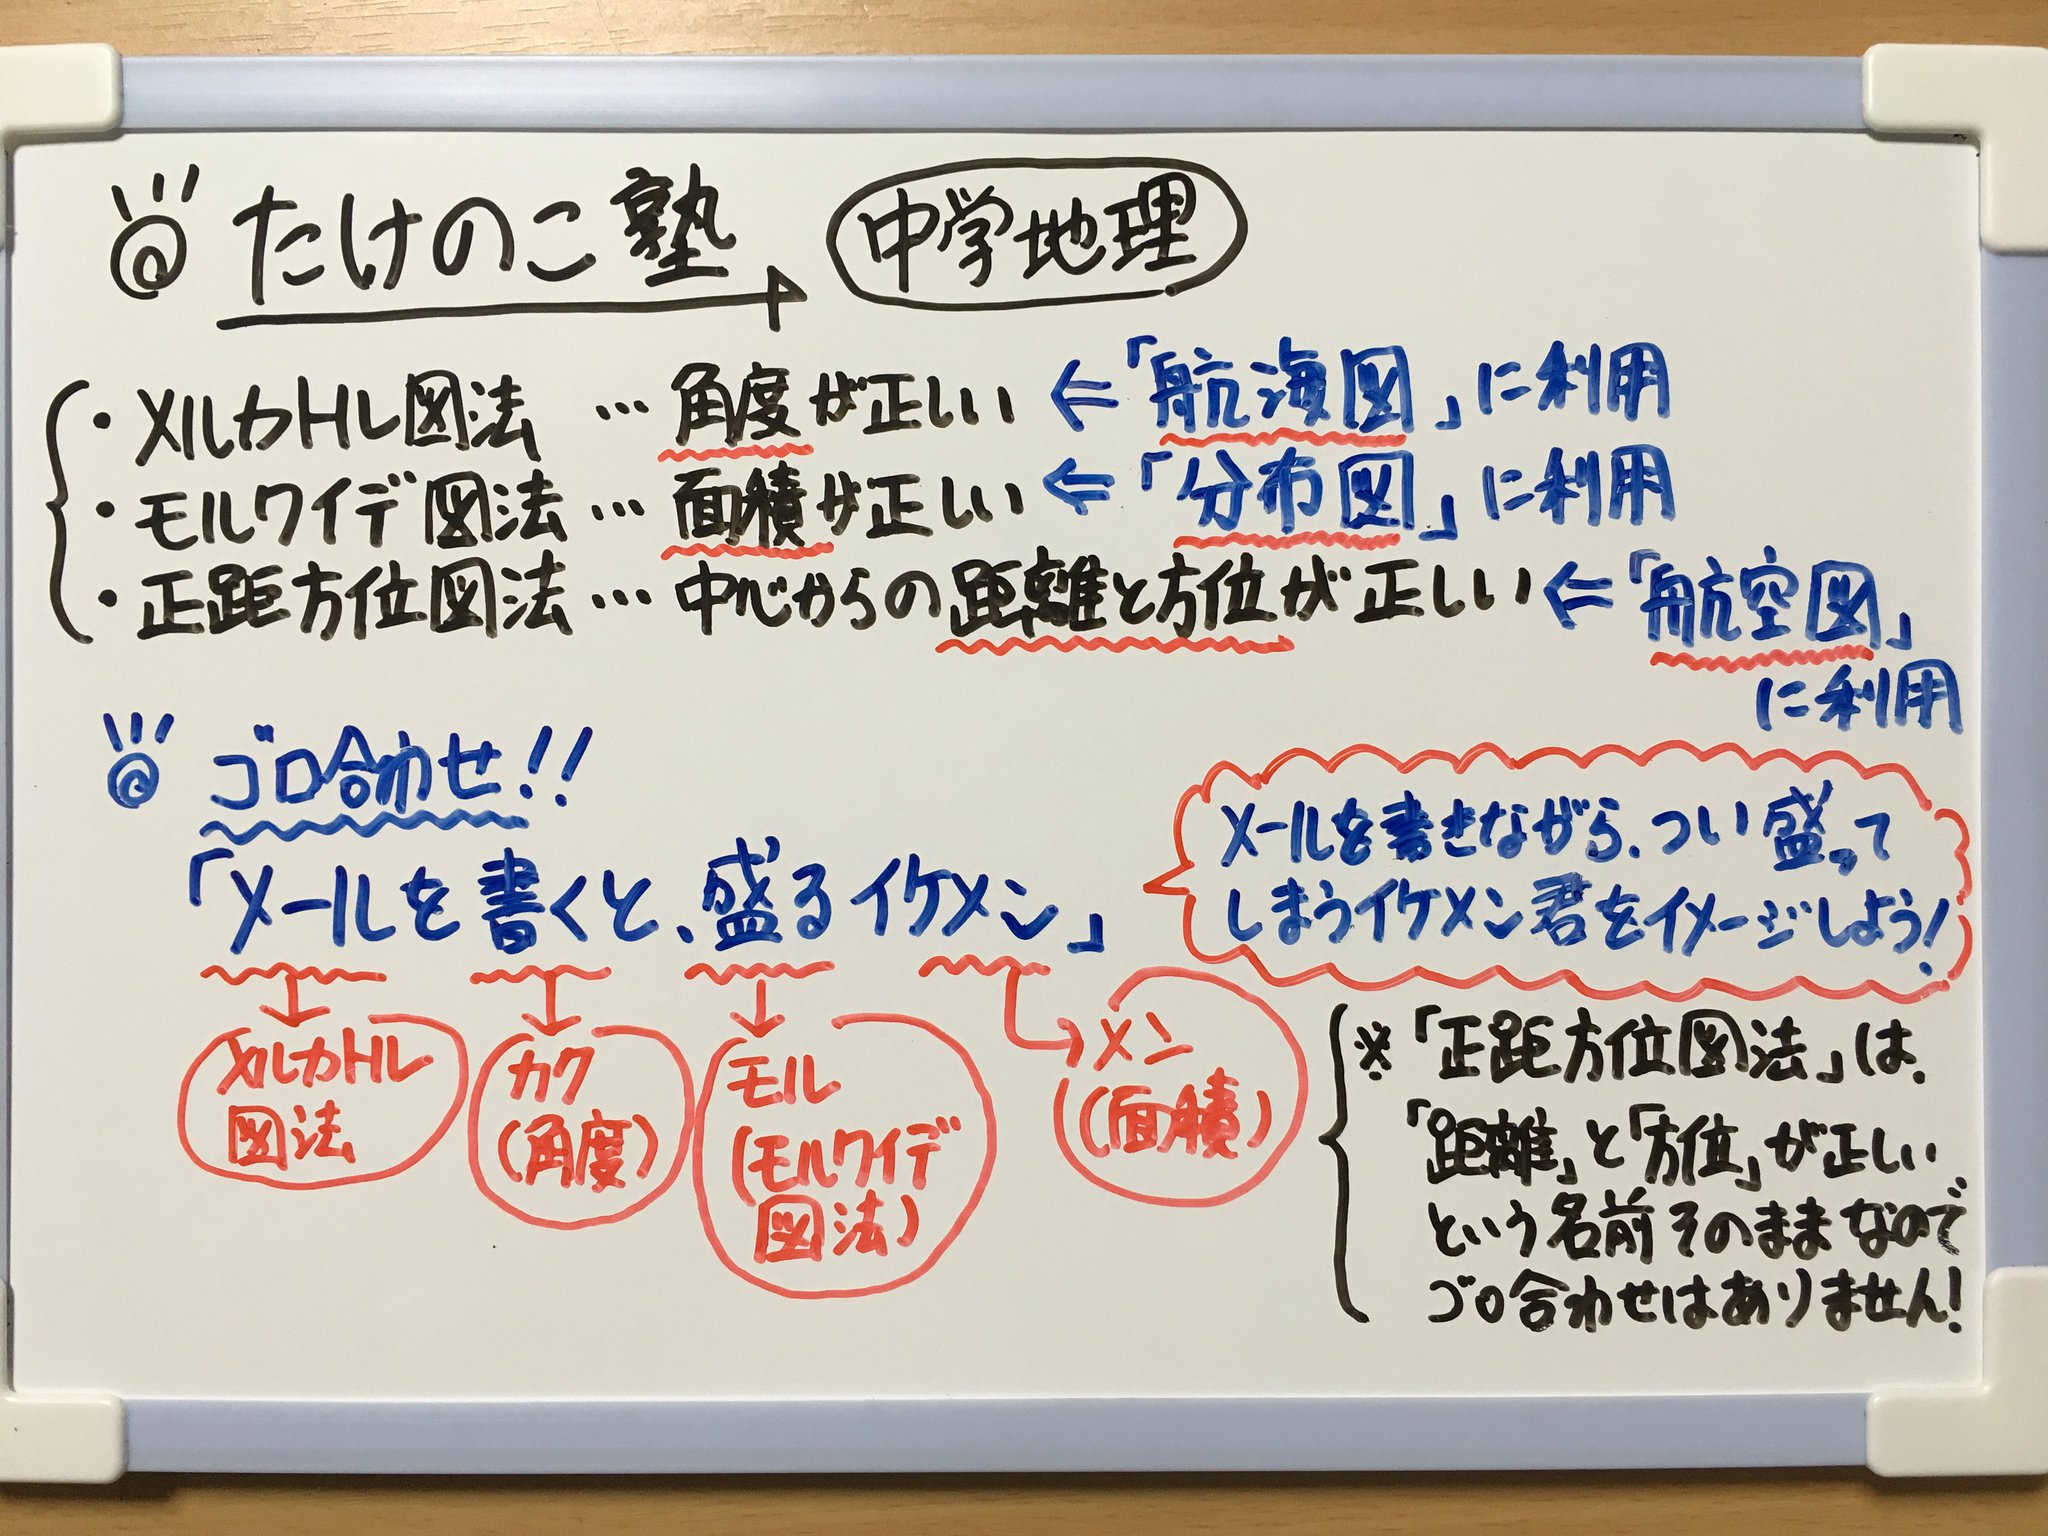 たけのこ塾 中学地理
・メルカトル図法 … 角度が正しい ⇐「航海図」に利用
・モルワイデ図法 … 面積が正しい ⇐「分布図」に利用
・正距方位図法 … 中心からの距離と方位が正しい ⇐「航空図」
に利用
ゴロ合わせ!!
「メールを書くと、盛るイケメン」
メールを書きながら、つい盛って
しまうイケメン君をイメージしよう!
メルカトル
図法
カク
(角度)
モル
(モルワイデ
図法)
メン
(面積)
※「正距方位図法」は、
「距離」と「方位」が正しい
という名前そのままなので
ゴロ合わせはありません!